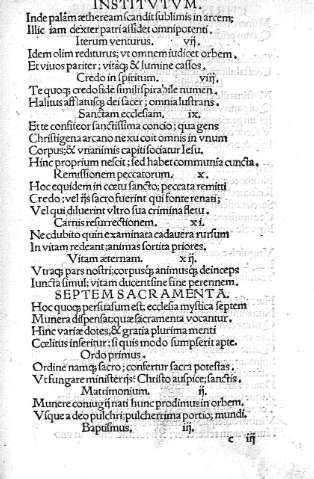 INSTITVTVM.
Inde palâm ætheream scandit sublimis in arcem;
Illic iam dexter patri assidet omnipotenti.
Iterum venturus. vij.
Idem olim rediturus; vt omnem iudicet orbem.
Et viuos pariter; vitaq; & lumine cassos.
Credo in spiritum. viij.
Te quoq; credo fide simili spirabile numen,
Halitus afflatusq; dei sacer; omnia lustrans.
Sanctam ecclesiam. ix.
Et te confiteor sanctissima concio; qua gens
Christigena arcano nexu coit omnis in vnum
Corpus; & vnanimis capiti sociatur Iesu.
Hinc proprium nescit; sed habet communia cuncta.
Remissionem peccatorum. x.
Hoc equidem in cœtu sancto; peccata remitti
Credo; vel ijs sacro fuerint qui fonte renati;
Vel qui diluerint vltro sua crimina fletu.
Carnis resurrectionem. xi.
Nec dubito quin examinata cadauera rursum
In vitam redeant; animas sortita priores.
Vitam æternam. xij.
Vtraq; pars nostri; corpusq; animusq; deinceps
Iuncta simul; vitam ducent sine fine perennem.
SEPTEM SACRAMENTA.
Hoc quoq; persuasum est; ecclesia mystica septem
Munera dispensat; quæ sacramenta vocantur.
Hinc variæ dotes, & gratia plurima menti
Cœlitus inseritur: si quis modo sumpserit apte.
Ordo primus.
Ordine namq; sacro; confertur sacra potestas.
Vt fungare ministerijs: Christo auspice; sanctis.
Matrimonium. ij.
Munere coniugij nati hunc prodimus in orbem.
Vsque adeo pulchri; pulcherrima portio; mundi.
Baptismus. iij.
c iij